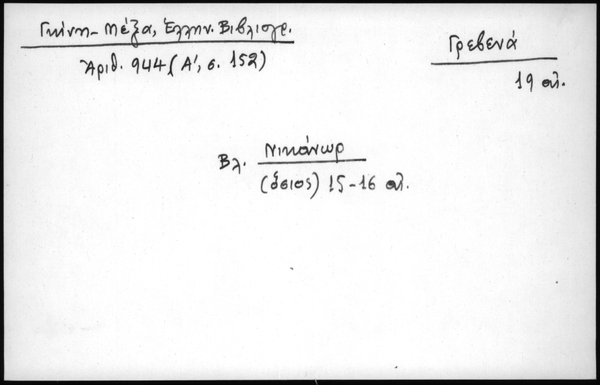 Γκίνη - Μέξα, Ἑλλην. Βιβλιογρ.
Ἀριθ. 944 (Α΄, σ. 152)
Γρεβενά
19 αἰ.
Βλ. Νικάνωρ
(ὅσιος) 15-16 αἰ.